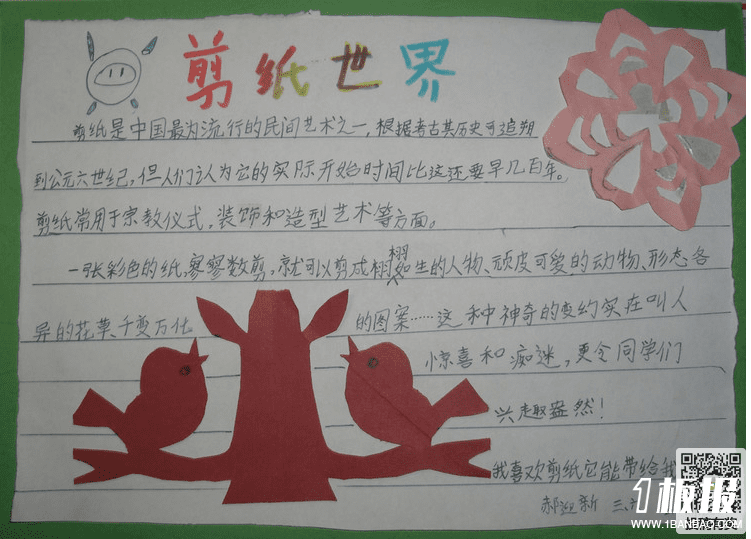 剪纸世界
剪纸是中国最为流行的民间艺术之一,根据考古其历史可追朔
到公元六世纪,但人们认为它的实际开始时间比这还要早几百年。
剪纸常用于宗教仪式,装饰和造型艺术等方面。
一张彩色的纸寥寥数剪,就可以剪成栩栩如生的人物、顽皮可爱的动物、形态各
异的花草、千变万化的图案……这种神奇的变幻实在叫人
惊喜和痴迷,更令同学们
兴趣盎然!
我喜欢剪纸它能带给我
郝迎新 三.
1板报
WWW.1BANBAO.COM